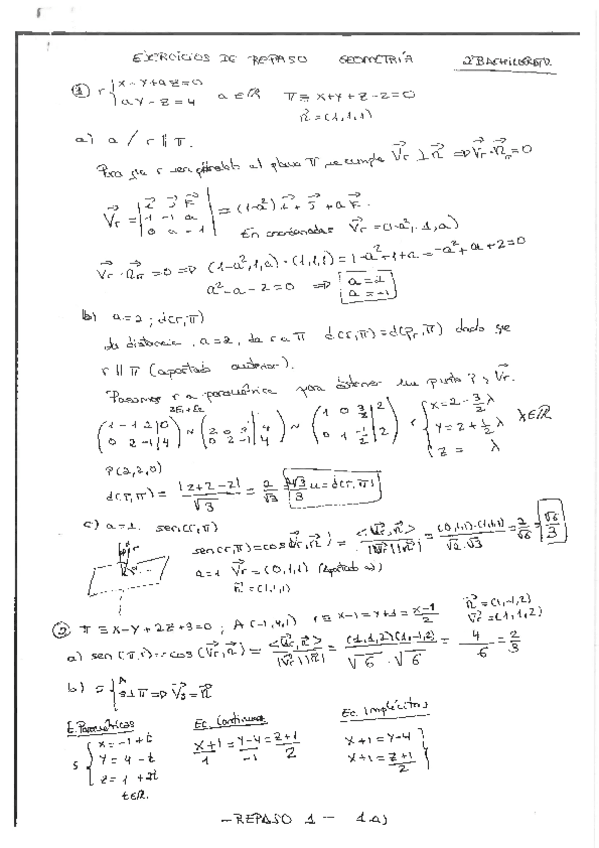 EJERCICIOS DE REPASO GEOMETRÍA 2º BACHILLERATO.
① r { x - y + az = 0
ay - z = 4 a ∈ ℝ π ≡ x + y + z - 2 = 0
n⃗ = (1,1,1)
a) a / r ∥ π.
Para que r sea paralela al plano π se cumple V⃗r ⊥ n⃗ ⇒ V⃗r · n⃗π = 0
V⃗r = | i⃗ j⃗ k⃗ |
| 1 -1 a | = (1-a²) i⃗ + j⃗ + a k⃗.
| 0 a -1 | En coordenadas V⃗r = (1-a², 1, a)
V⃗r · n⃗π = 0 ⇒ (1-a², 1, a) · (1,1,1) = 1-a²+1+a = -a²+a+2 = 0
a² - a - 2 = 0 ⇒ a = 2
a = -1
b) a = 2 ; d(r, π)
La distancia, a = 2, de r a π d(r, π) = d(Pr, π) dado que
r ∥ π (apartado anterior).
Pasamos r a paramétrica para obtener un punto P y V⃗r.
2E₁+E₂
( 1 -1 2 | 0 ) ~ ( 2 0 3 | 4 ) ~ ( 1 0 3/2 | 2 ) r { x = 2 - 3/2 λ
( 0 2 -1 | 4 ) ( 0 2 -1 | 4 ) ( 0 1 -1/2 | 2 ) y = 2 + 1/2 λ λ ∈ ℝ
z = λ
P(2,2,0)
d(r, π) = |2+2-2| / √3 = 2/√3 = 2√3/3 u = d(r, π)
c) a = 1. sen(r, π)
sen(r, π) = cos(V⃗r, n⃗) = <V⃗r, n⃗> / |V⃗r||n⃗| = (0,1,1)·(1,1,1) / √2·√3 = 2/√6 = √6/3
a = 1 V⃗r = (0,1,1) (Apartado a)
n⃗ = (1,1,1)
② π ≡ x - y + 2z + 3 = 0 ; A(-1,4,1) r ≡ x-1 = y+1 = x-1/2 n⃗ = (1,-1,2)
V⃗r = (1,1,2)
a) sen(π, r) = cos(V⃗r, n⃗) = <V⃗r, n⃗> / |V⃗r||n⃗| = (1,1,2)(1,-1,2) / √6 · √6 = 4/6 = 2/3
b) s { A
s ⊥ π ⇒ V⃗s = n⃗
E. Paramétricas Ec. Continuas Ec. Implícitas
s { x = -1 + t x+1/1 = y-4/-1 = z+1/2 x+1 = y-4
y = 4 - t x+1 = z+1/2
z = 1 + 2t
t ∈ ℝ.
- REPASO 1 - 1a)